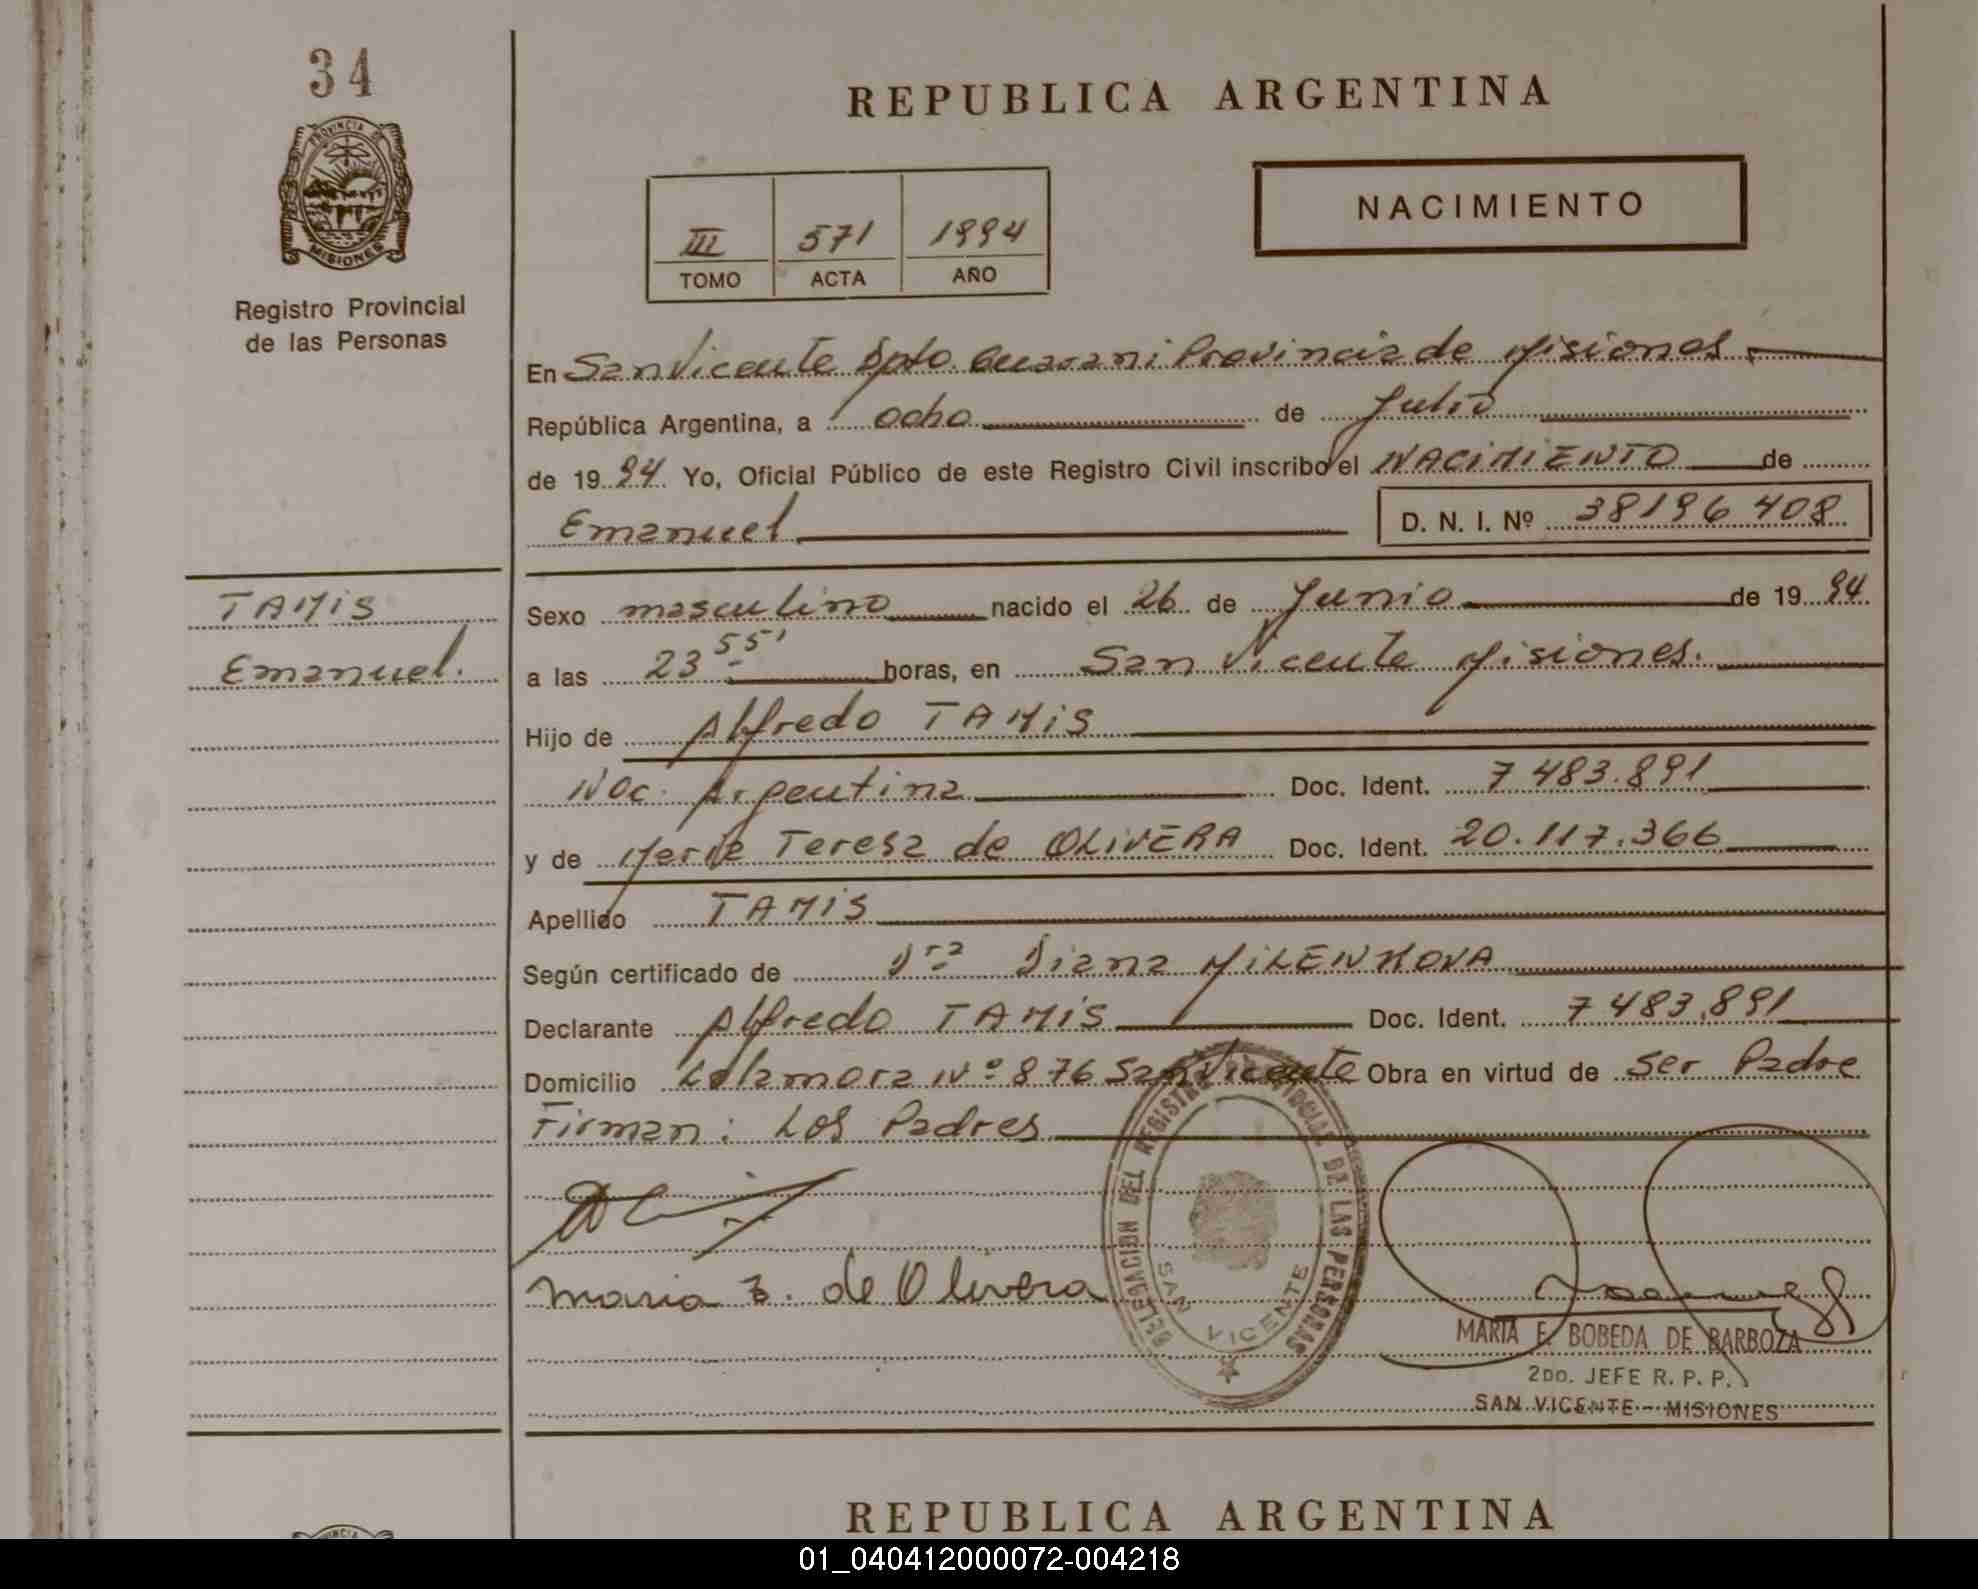 34
PROVINCIA DE
MISIONES
Registro Provincial
de las Personas
REPUBLICA ARGENTINA
III 571 1994
TOMO ACTA AÑO
NACIMIENTO
En San Vicente Dpto. Guarani Provincia de Misiones
República Argentina, a ocho de Julio
de 1994 Yo, Oficial Público de este Registro Civil inscribo el NACIMIENTO de
Emanuel D. N. I. Nº 38196 408
TAMIS
Emanuel.
Sexo masculino nacido el 26 de Junio de 1994
a las 23 55' horas, en San Vicente Misiones.
Hijo de Alfredo TAMIS
Nac. Argentina Doc. Ident. 7 483.891
y de Maria Teresa de OLIVERA Doc. Ident. 20.117.366
Apellido TAMIS
Según certificado de Dra Diana MILENKOVA
Declarante Alfredo TAMIS Doc. Ident. 7 483.891
Domicilio Lolamora Nº 876 San Vicente Obra en virtud de ser Padre
Firman: Los Padres
Maria T. de Olivera
DELEGACION DEL REGISTRO PROVINCIAL DE LAS PERSONAS
SAN VICENTE
MARIA E. BOBEDA DE BARBOZA
2DO. JEFE R. P. P.
SAN VICENTE - MISIONES
REPUBLICA ARGENTINA
01_040412000072-004218